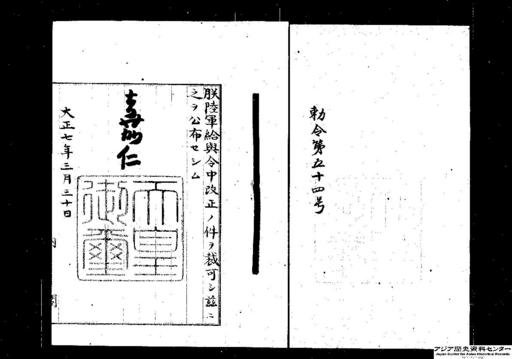 勅令第五十四号
朕陸軍給與令中改正ノ件ヲ裁可シ茲ニ
之ヲ公布セシム
嘉仁
天皇御璽
大正七年三月三十日
内閣
アジア歴史資料センター
Japan Center for Asian Historical Records